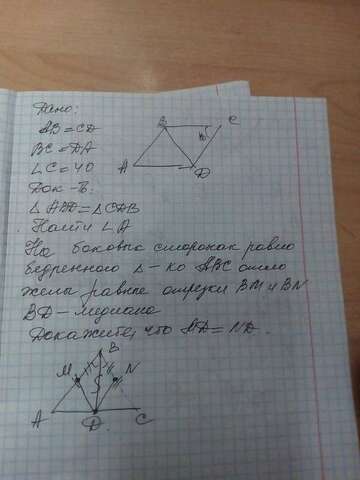 Дано:
AB = CD
BC = DA
∠C = 40
Док-ть:
△ABD = △CDB
Найти ∠A
На боковых сторонах равно
бедренного △-ка ABC отло
жены равные отрезки BM и BN
BD - медиана
Докажите, что MD = ND.
B
C
40
A
D
B
M
N
A
D
C